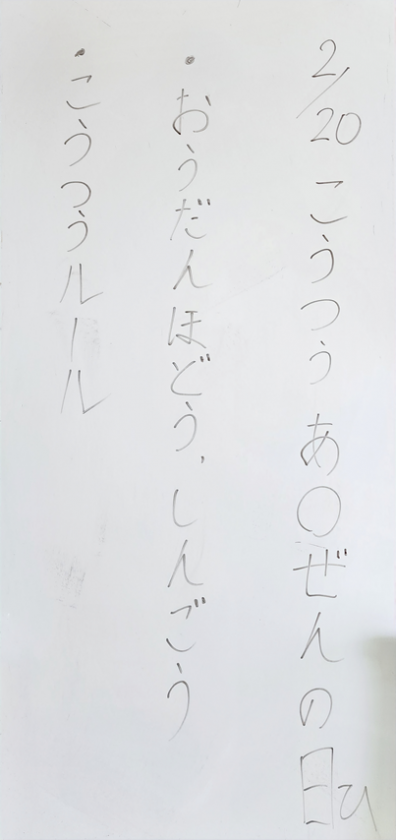 2/20 こうつう あ〇ぜんの日ひ
・おうだんほどう、しんごう
・こうつうルール